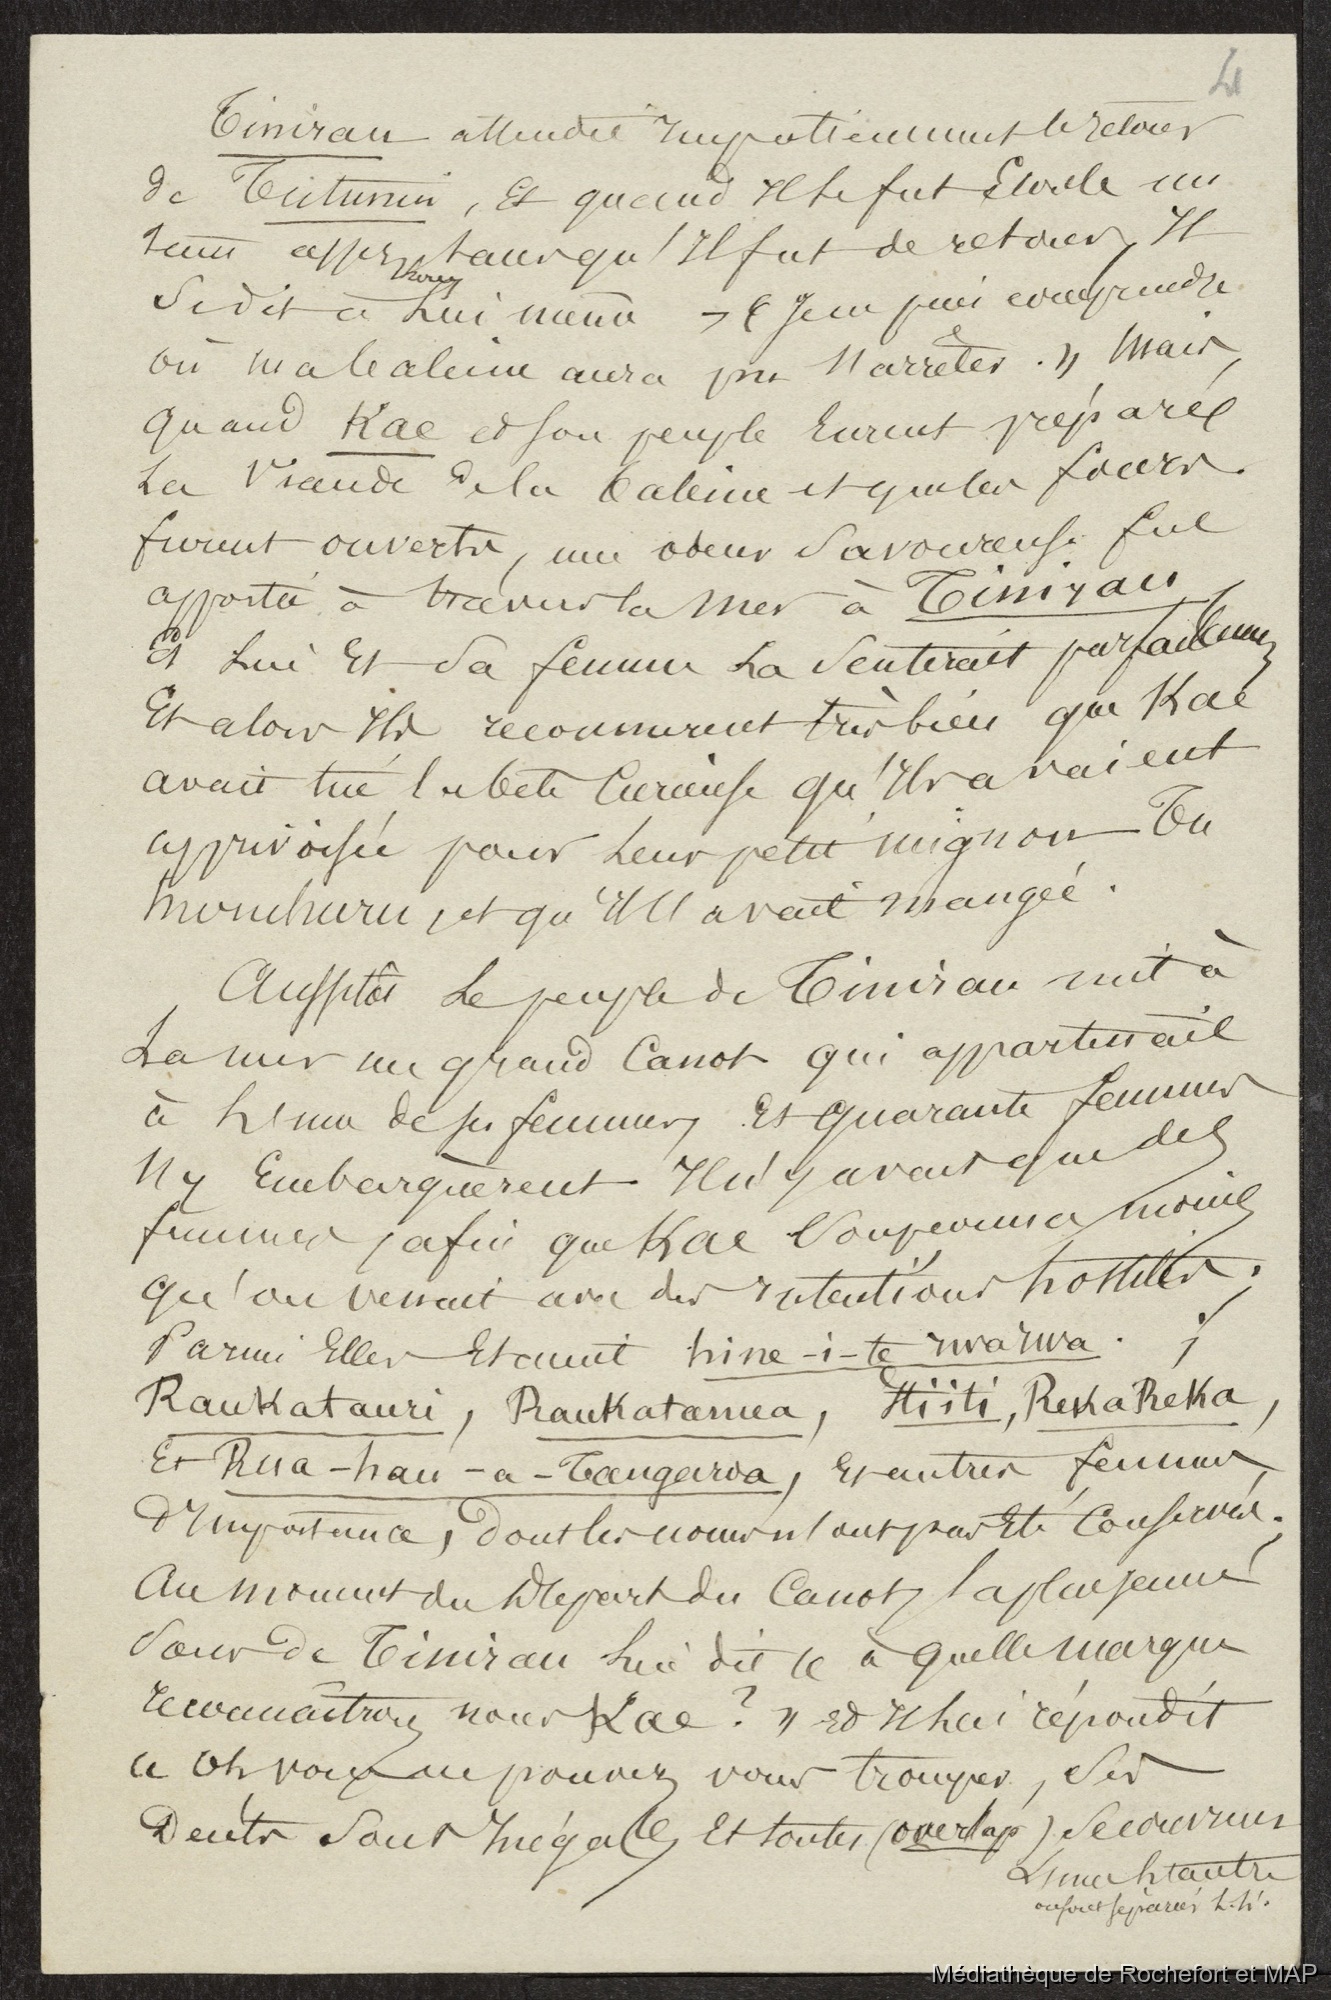 4
Tinirau attendit Impatiemment le retour
de Tutunui, Et quand Il se fut Ecoulé un
tems assez long
pour qu'Il fut de retour, Il
se dit à Lui même « Je ne puis comprendre
où ma baleine aura pu s'arrêter. » Mais,
quand Kae et son peuple Eurent préparé
La Viande de la baleine et que les fours
furent ouverts, une odeur Savoureuse fut
apportée à travers la Mer à Tinirau,
Et Lui Et Sa femme La Sentirait parfaitement
Et alors Ils reconnurent très bien que Kae
avait tué la bête Curieuse qu'Ils avaient
apprivoisée pour Leur petit mignon Tu
huruhuru, et qu'Il l'avait mangée.
Aussitôt Le peuple de Tinirau mit à
La mer un grand Canot qui appartenait
à L'une de ses femmes, Et Quarante femmes
s'y Embarquèrent Il n'y avait que des
femmes, afin que Kae Soupçonna moins
qu'on venait avec des Intentions hostiles;
Parmi Elles Etaient hine-i-te iwaiwa.
Raukatauri, Raukatamea, Itiiti, RekaReka,
Et Rua-hau-a-Tangaroa, Et autres femmes,
D'Importance, Dont les noms n'ont pas Eté Conservés.
Au moment du Départ du Canot, la plus jeune
Sœur De Tinirau Lui dit « à quelle marque
reconnaîtrons nous Kae? » Et Il lui répondit
« Oh vous ne pouvez vous tromper, Ses
Dents Sont Inégales, Et toutes (overlap) Se couvrent
L'une L'autre
ou sont séparées